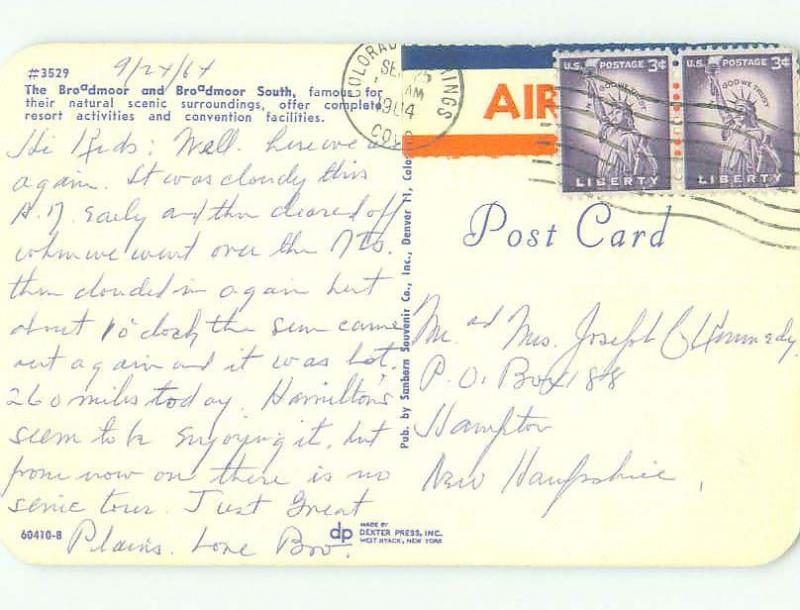 #3529
9/24/64
The Broadmoor and Broadmoor South, famous for
their natural scenic surroundings, offer complete
resort activities and convention facilities.
Hi Kids: Well here we are
again. It was cloudy this
A.M. early and then cleared off
when we went over the Mts.
then clouded in again but
about 10 o'clock the sun came
out again and it was hot.
260 miles today. Hamilton's
seem to be enjoying it, but
from now on there is no
scenic tour. Just Great
Plains. Love Bov.
60410-B
dp
MADE BY
DEXTER PRESS, INC.
WEST NYACK, NEW YORK
Pub. by Sanborn Souvenir Co., Inc., Denver 11, Colo.
COLORADO SPRINGS
SEP 25
AM
1964
COLO
AIR
U.S. POSTAGE 3¢
IN GOD WE TRUST
LIBERTY
U.S. POSTAGE 3¢
IN GOD WE TRUST
LIBERTY
Post Card
Mr. and Mrs. Joseph Kennedy
P.O. Box 188
Hampton
New Hampshire,